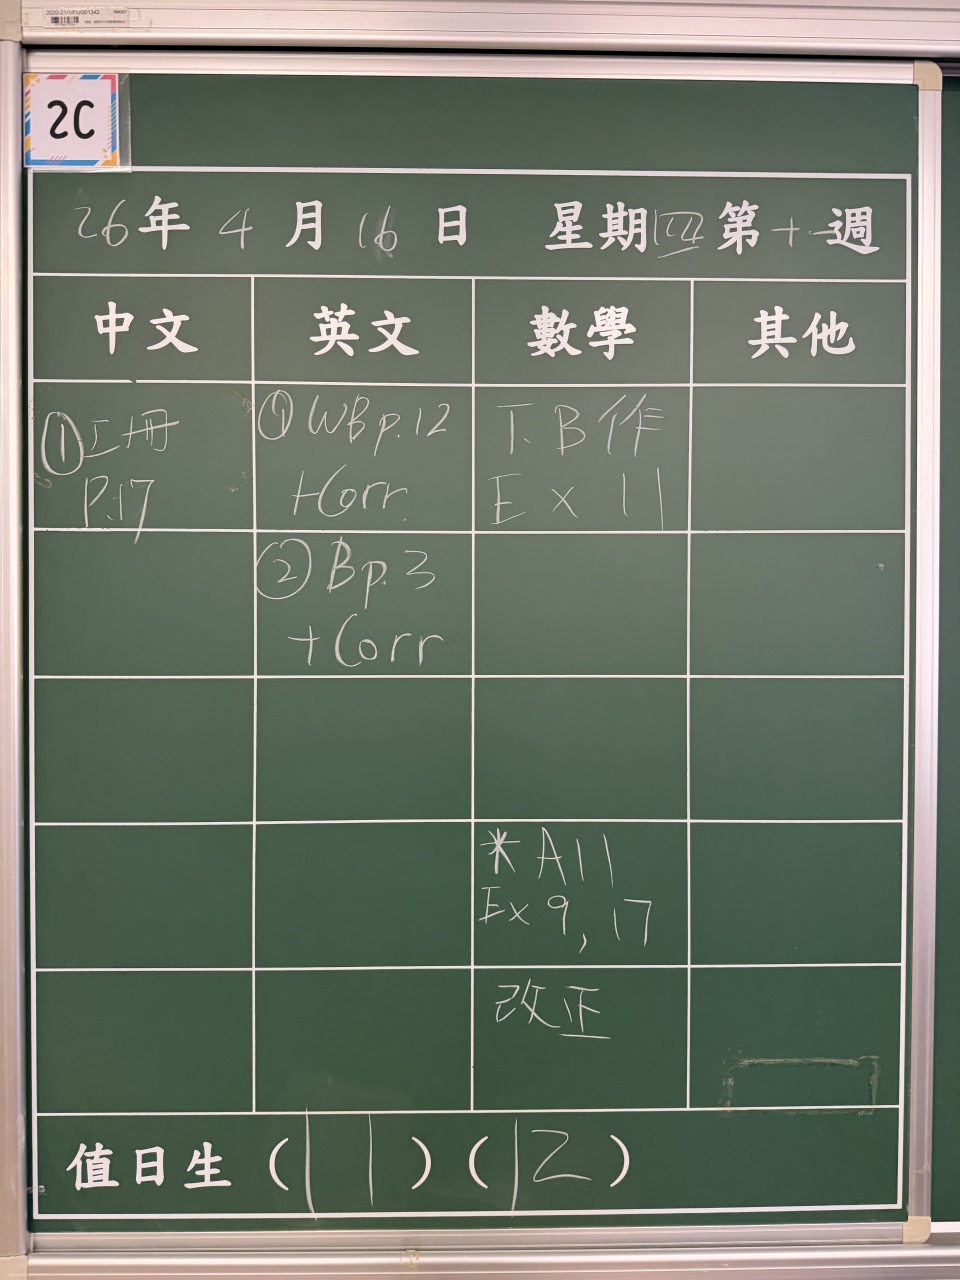 2020-21/1/FU/001342
2C
26年 4月 16日 星期四 第十一週
中文 英文 數學 其他
①工冊
P.17
①WBp.12
+Corr.
T.B作
Ex 11
②Bp.3
+Corr
*A11
Ex 9, 17
改正
值日生 (11) (12)